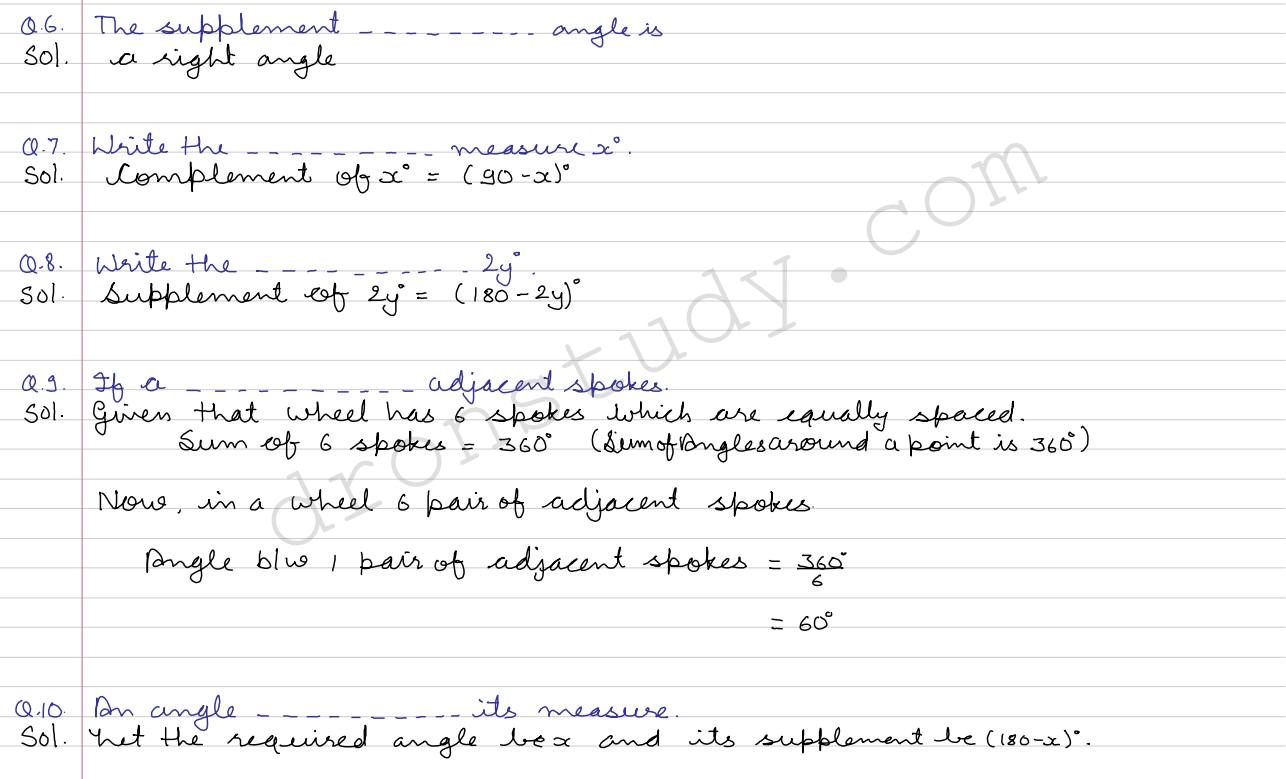 Q.6. The supplement --------- angle is
Sol. a right angle
Q.7. Write the --------- measure x°.
Sol. Complement of x° = (90-x)°
Q.8. Write the ---------- 2y°.
Sol. Supplement of 2y° = (180-2y)°
Q.9. If a ---------- adjacent spokes.
Sol. Given that wheel has 6 spokes which are equally spaced.
Sum of 6 spokes = 360° (Sum of Angles around a point is 360°)
Now, in a wheel 6 pair of adjacent spokes.
Angle b/w 1 pair of adjacent spokes = 360°/6
= 60°
Q.10. An angle ---------- its measure.
Sol. Let the required angle be x and its supplement be (180-x)°.
dronstudy.com